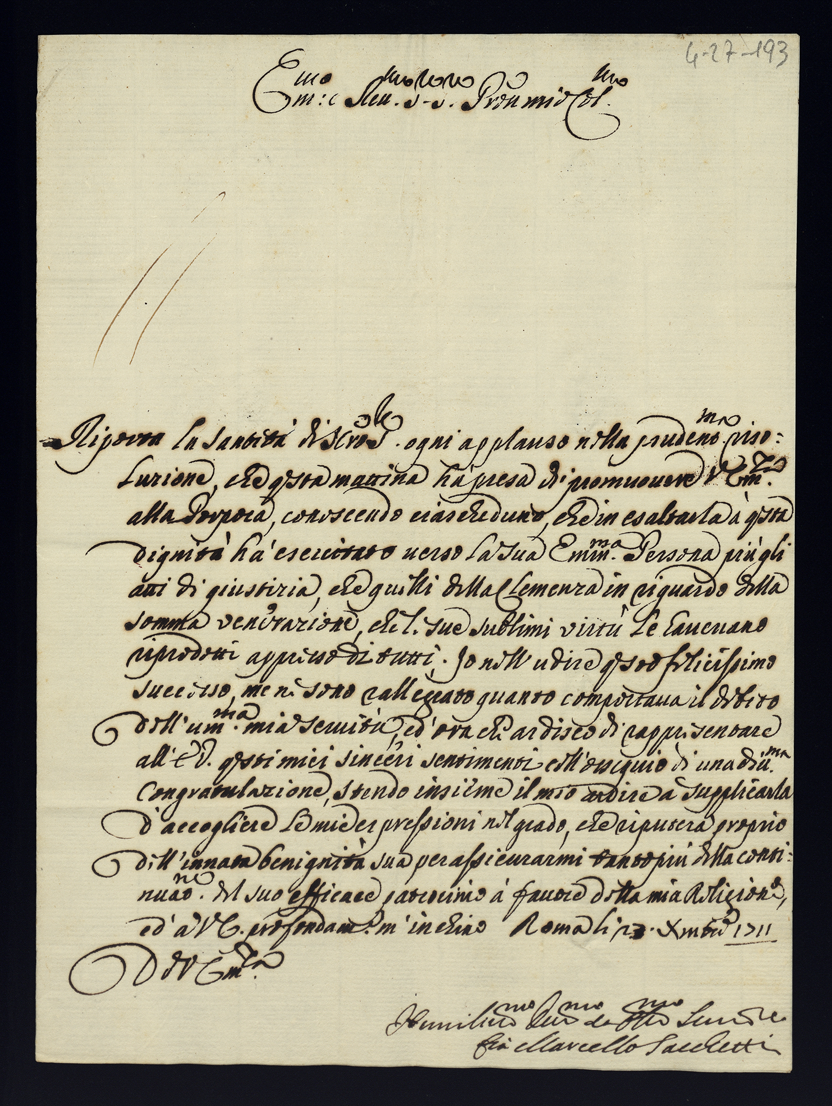 4-27-193
Em:o e Reu.mo S.re S.re Pron mio Col.mo
Riporta la Santità di N'ro S.re ogni applauso nella prudent.ma riso:
luzione, che q'sta mattina hà presa di promuovere V. Em.za
alla Porpora, conoscendo ciascheduno, che in esaltarla à q'sta
dignità hà esercitato verso la sua Emin.ma Persona più gli
atti di giustizia, che quelli della Clemenza in riguardo della
somma venerazione, che le sue sublimi virtù Le haveuano
riprodotti appresso di tutti. Io nell'udire q'sto felicissimo
successo, me ne sono rallegrato quanto comportaua il debito
dell'um.ma mia seruitù, ed ora che ardisco di rappresentare
all'E.V. q'sti miei sinceri sentimenti coll'ossequio di una diu.ma
Congratulazione, stendo insieme il mio ardire à supplicarla
d'accogliere le mie espressioni nel grado, che riputerà proprio
dell'innata benignità sua per assicurarmi tanto più della conti:
nuaz.ne del suo efficace patrocinio à fauore della mia Religione,
ed à V.E. profondam.te m'inchino Roma li 23. Xmbre 1711
D V Em.za
Humiliss.mo Diu.mo ed Obl.mo Seruidore
fra Marcello Sacchetti